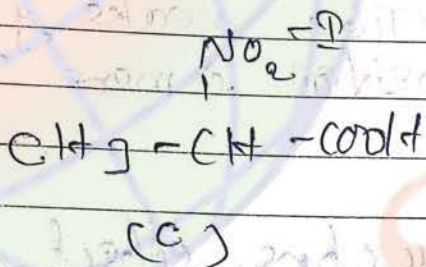 NO2 -I
CH3 - CH - COOH
(C)